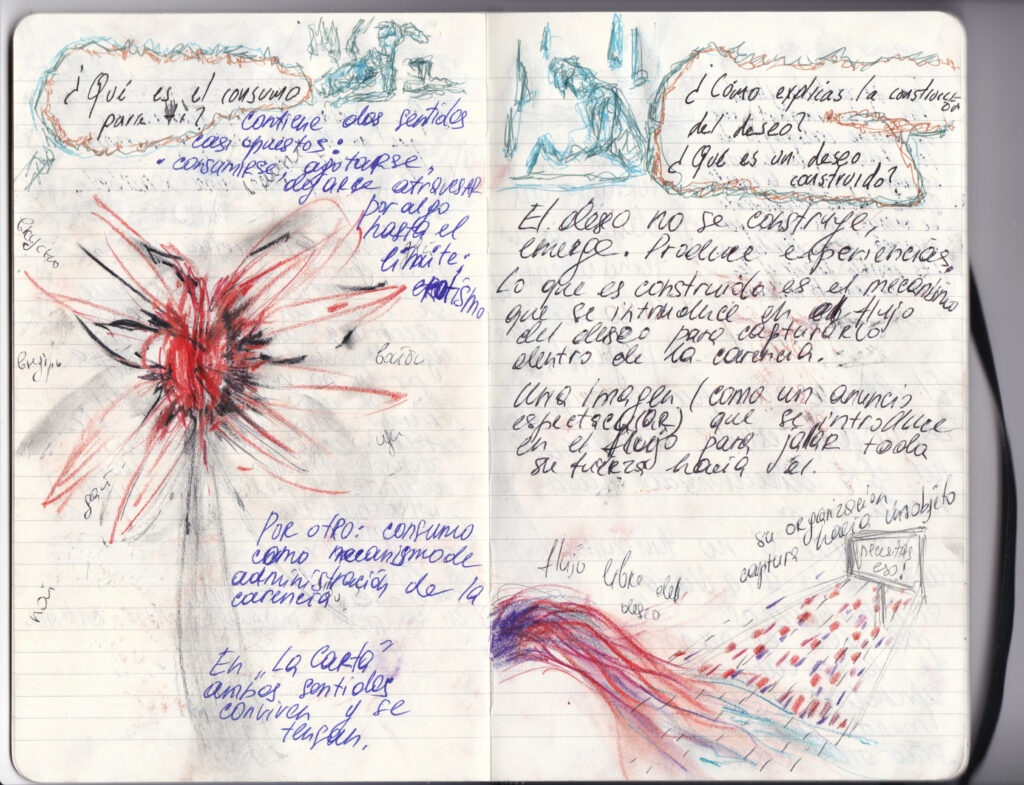 ¿Qué es el consumo
para ti?
Contiene dos sentidos
casi opuestos:
• consumirse, agotarse,
dejarse atravesar
por algo
hasta el
límite:
erotismo
Por otro: consumo
como mecanismo de
administración de la
carencia
En „La Carta”
ambos sentidos
conviven y se
tensan.
¿Cómo explicas la construcción
del deseo?
¿Qué es un deseo
construido?
El deseo no se construye,
emerge. Produce experiencias.
Lo que es construido es el mecanismo
que se introduce en el flujo
del deseo para capturarlo
dentro de la carencia.
Una imagen (como un anuncio
espectacular) que se introduce
en el flujo para jalar toda
su fuerza hacia él.
flujo libre del
deseo
su organización
hacia un objeto
captura
necesitas
eso!